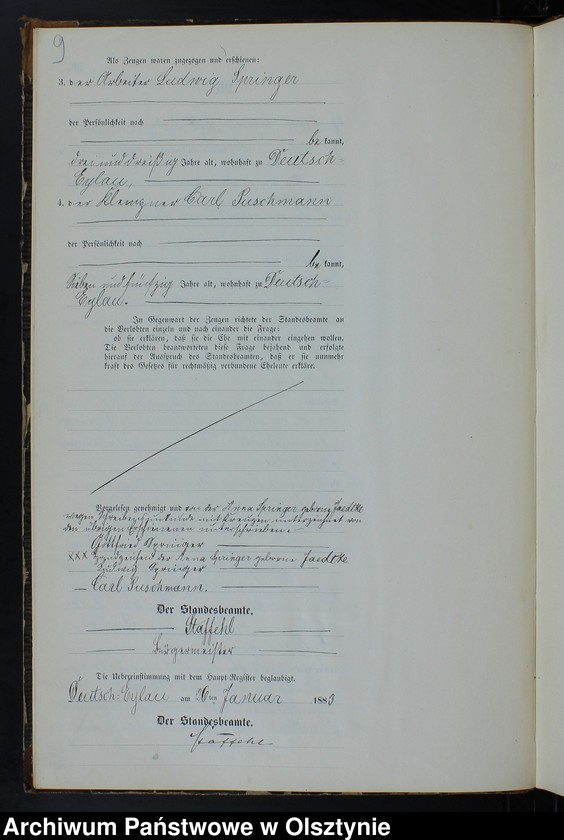 9
Als Zeugen waren zugezogen und erschienen:
3. der Arbeiter Ludwig Springer
der Persönlichkeit nach
bekannt,
dreiunddreißig Jahre alt, wohnhaft zu Deutsch-
Eylau,
4. der Klempner Carl Puschmann
der Persönlichkeit nach
bekannt,
Sieben und fünfzig Jahre alt, wohnhaft zu Deutsch-
Eylau.
In Gegenwart der Zeugen richtete der Standesbeamte an
die Verlobten einzeln und nach einander die Frage:
ob sie erklären, daß sie die Ehe mit einander eingehen wollen.
Die Verlobten beantworteten diese Frage bejahend und erfolgte
hierauf der Ausspruch des Standesbeamten, daß er sie nunmehr
kraft des Gesetzes für rechtmäßig verbundene Eheleute erkläre.
Vorgelesen, genehmigt und von der Anna Springer geborne Jaedtke
wegen Schreibensunkunde mit Kreuzen unterzeichnet von
den übrigen Erschienenen unterschrieben.
Gottfried Springer
XXX Handzeichen der Anna Springer geborne Jaedtke
Ludwig Springer
Carl Puschmann.
Der Standesbeamte.
Staffehl
Bürgermeister
Die Uebereinstimmung mit dem Haupt-Register beglaubigt.
Deutsch-Eylau am 26ten Januar 1883
Der Standesbeamte.
Staffehl
Archiwum Państwowe w Olsztynie